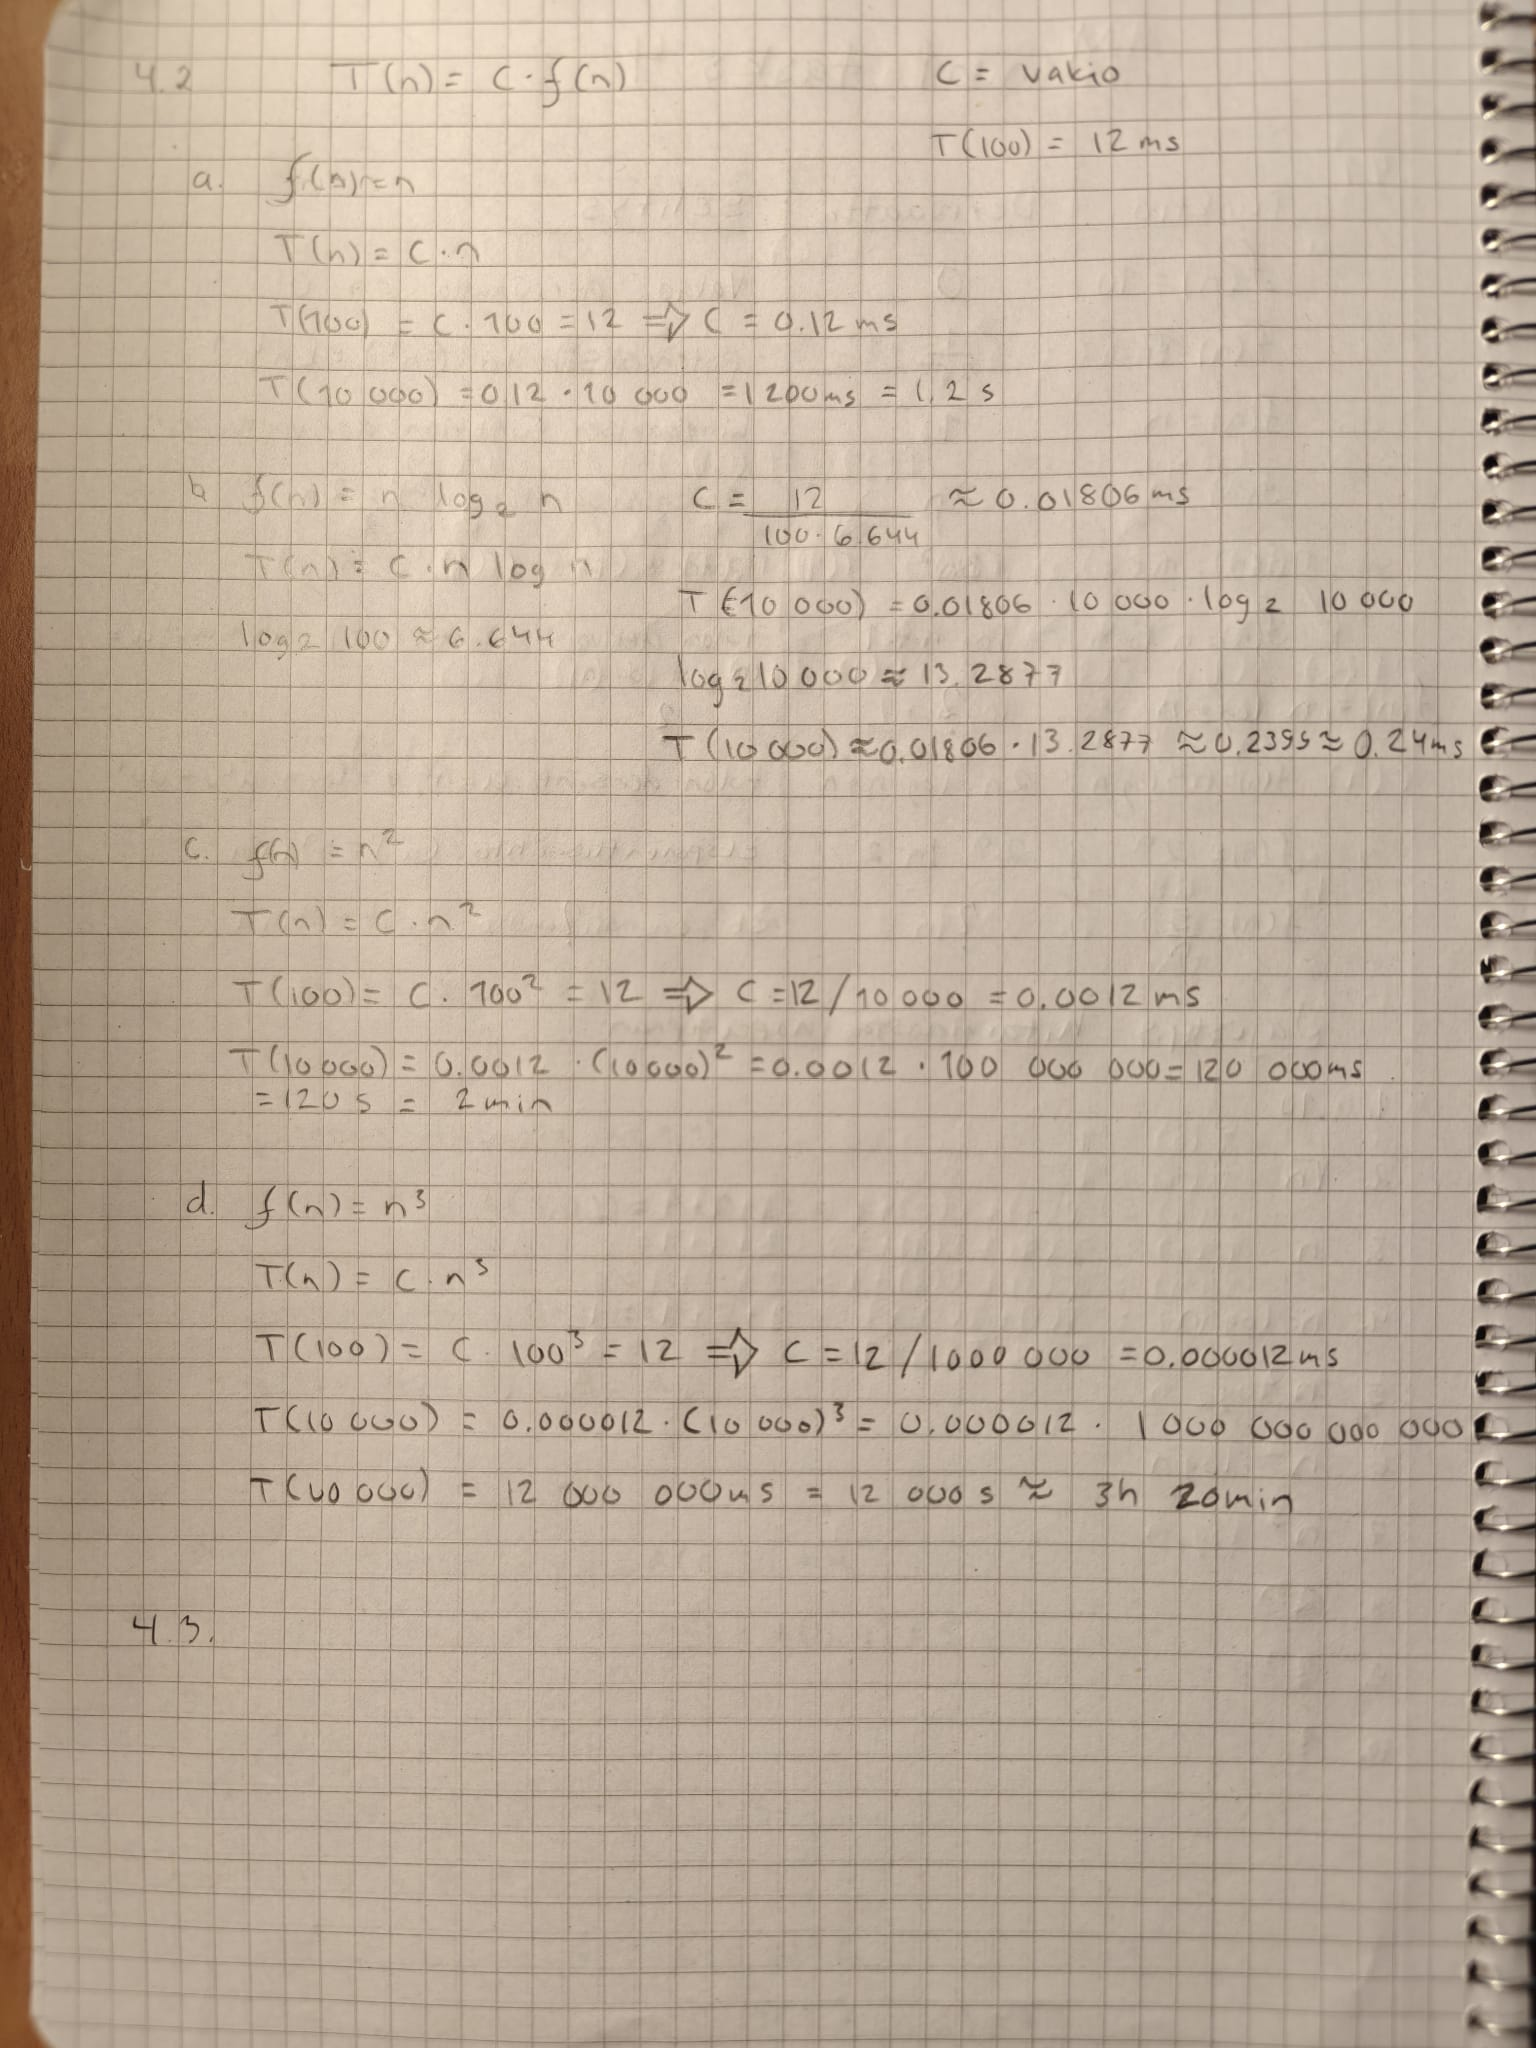 4.2 T(n) = C · f(n) C = vakio
T(100) = 12 ms
a. f(n) = n
T(n) = C · n
T(100) = C · 100 = 12 ⇒ C = 0.12 ms
T(10 000) = 0,12 · 10 000 = 1200ms = 1,2 s
b f(n) = n log₂ n
T(n) = C · n log n
log₂ 100 ≈ 6.644
C = 12 / 100 · 6.644 ≈ 0.01806 ms
T(10 000) = 0.01806 · 10 000 · log₂ 10 000
log₂ 10 000 ≈ 13.2877
T(10 000) ≈ 0.01806 · 13.2877 ≈ 0.2399 ≈ 0.24ms
c. f(n) = n²
T(n) = C · n²
T(100) = C · 100² = 12 ⇒ C = 12 / 10 000 = 0.0012 ms
T(10 000) = 0.0012 · (10 000)² = 0.0012 · 100 000 000 = 120 000ms
= 120 s = 2 min
d. f(n) = n³
T(n) = C · n³
T(100) = C · 100³ = 12 ⇒ C = 12 / 1000 000 = 0.000012 ms
T(10 000) = 0.000012 · (10 000)³ = 0.000012 · 1 000 000 000 000
T(10 000) = 12 000 000ms = 12 000 s ≈ 3h 20min
4.3.